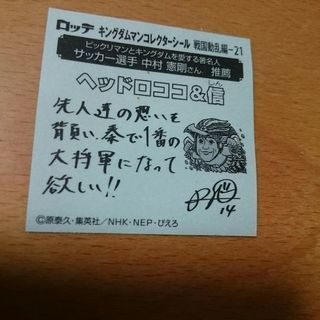 ロッテ キングダムマンコレクターシール 戦国動乱編-21
ビックリマンとキングダムを愛する著名人
サッカー選手 中村 憲剛さん 推薦
しん
ヘッドロココ&信
先人達の想いを
背負い、秦で1番の
大将軍になって
欲しい!!
14
©原泰久・集英社/NHK・NEP・ぴえろ